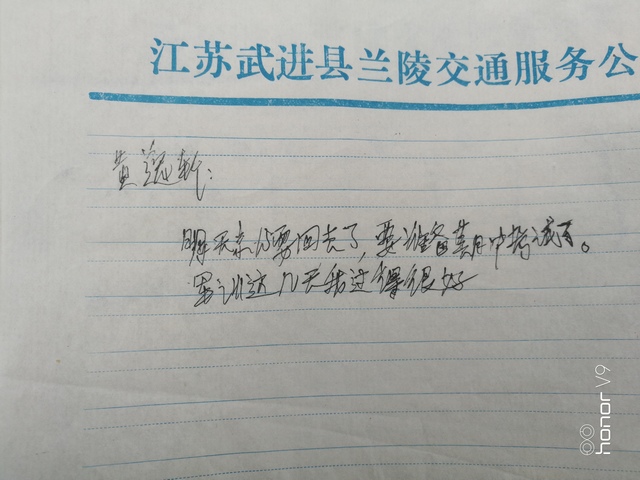 江苏武进县兰陵交通服务公
黄逸轩:
明天亲你要回去了,要准备其月中考试了。
军训这几天我过得很好
honor V9